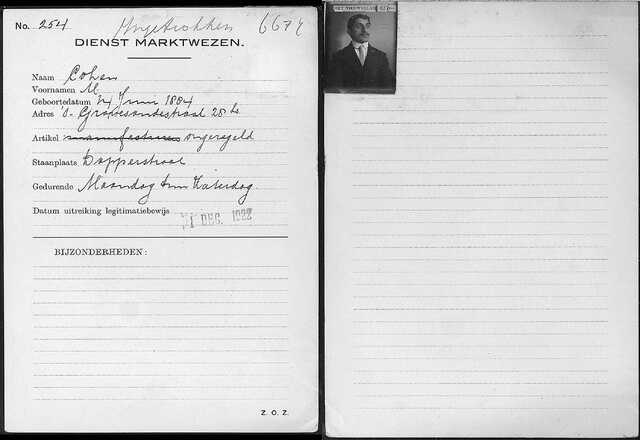 No. 254 Ingetrokken 6674
DIENST MARKTWEZEN.
Naam Cohen
Voornamen M
Geboortedatum 24 Juni 1884
Adres 's-Gravesandestraat 28 hs
Artikel manufacturen ongeregeld
Staanplaats Dapperstraat
Gedurende Maandag t/m Zaterdag
Datum uitreiking legitimatiebewijs DEC. 1922
BIJZONDERHEDEN:
Z. O. Z.